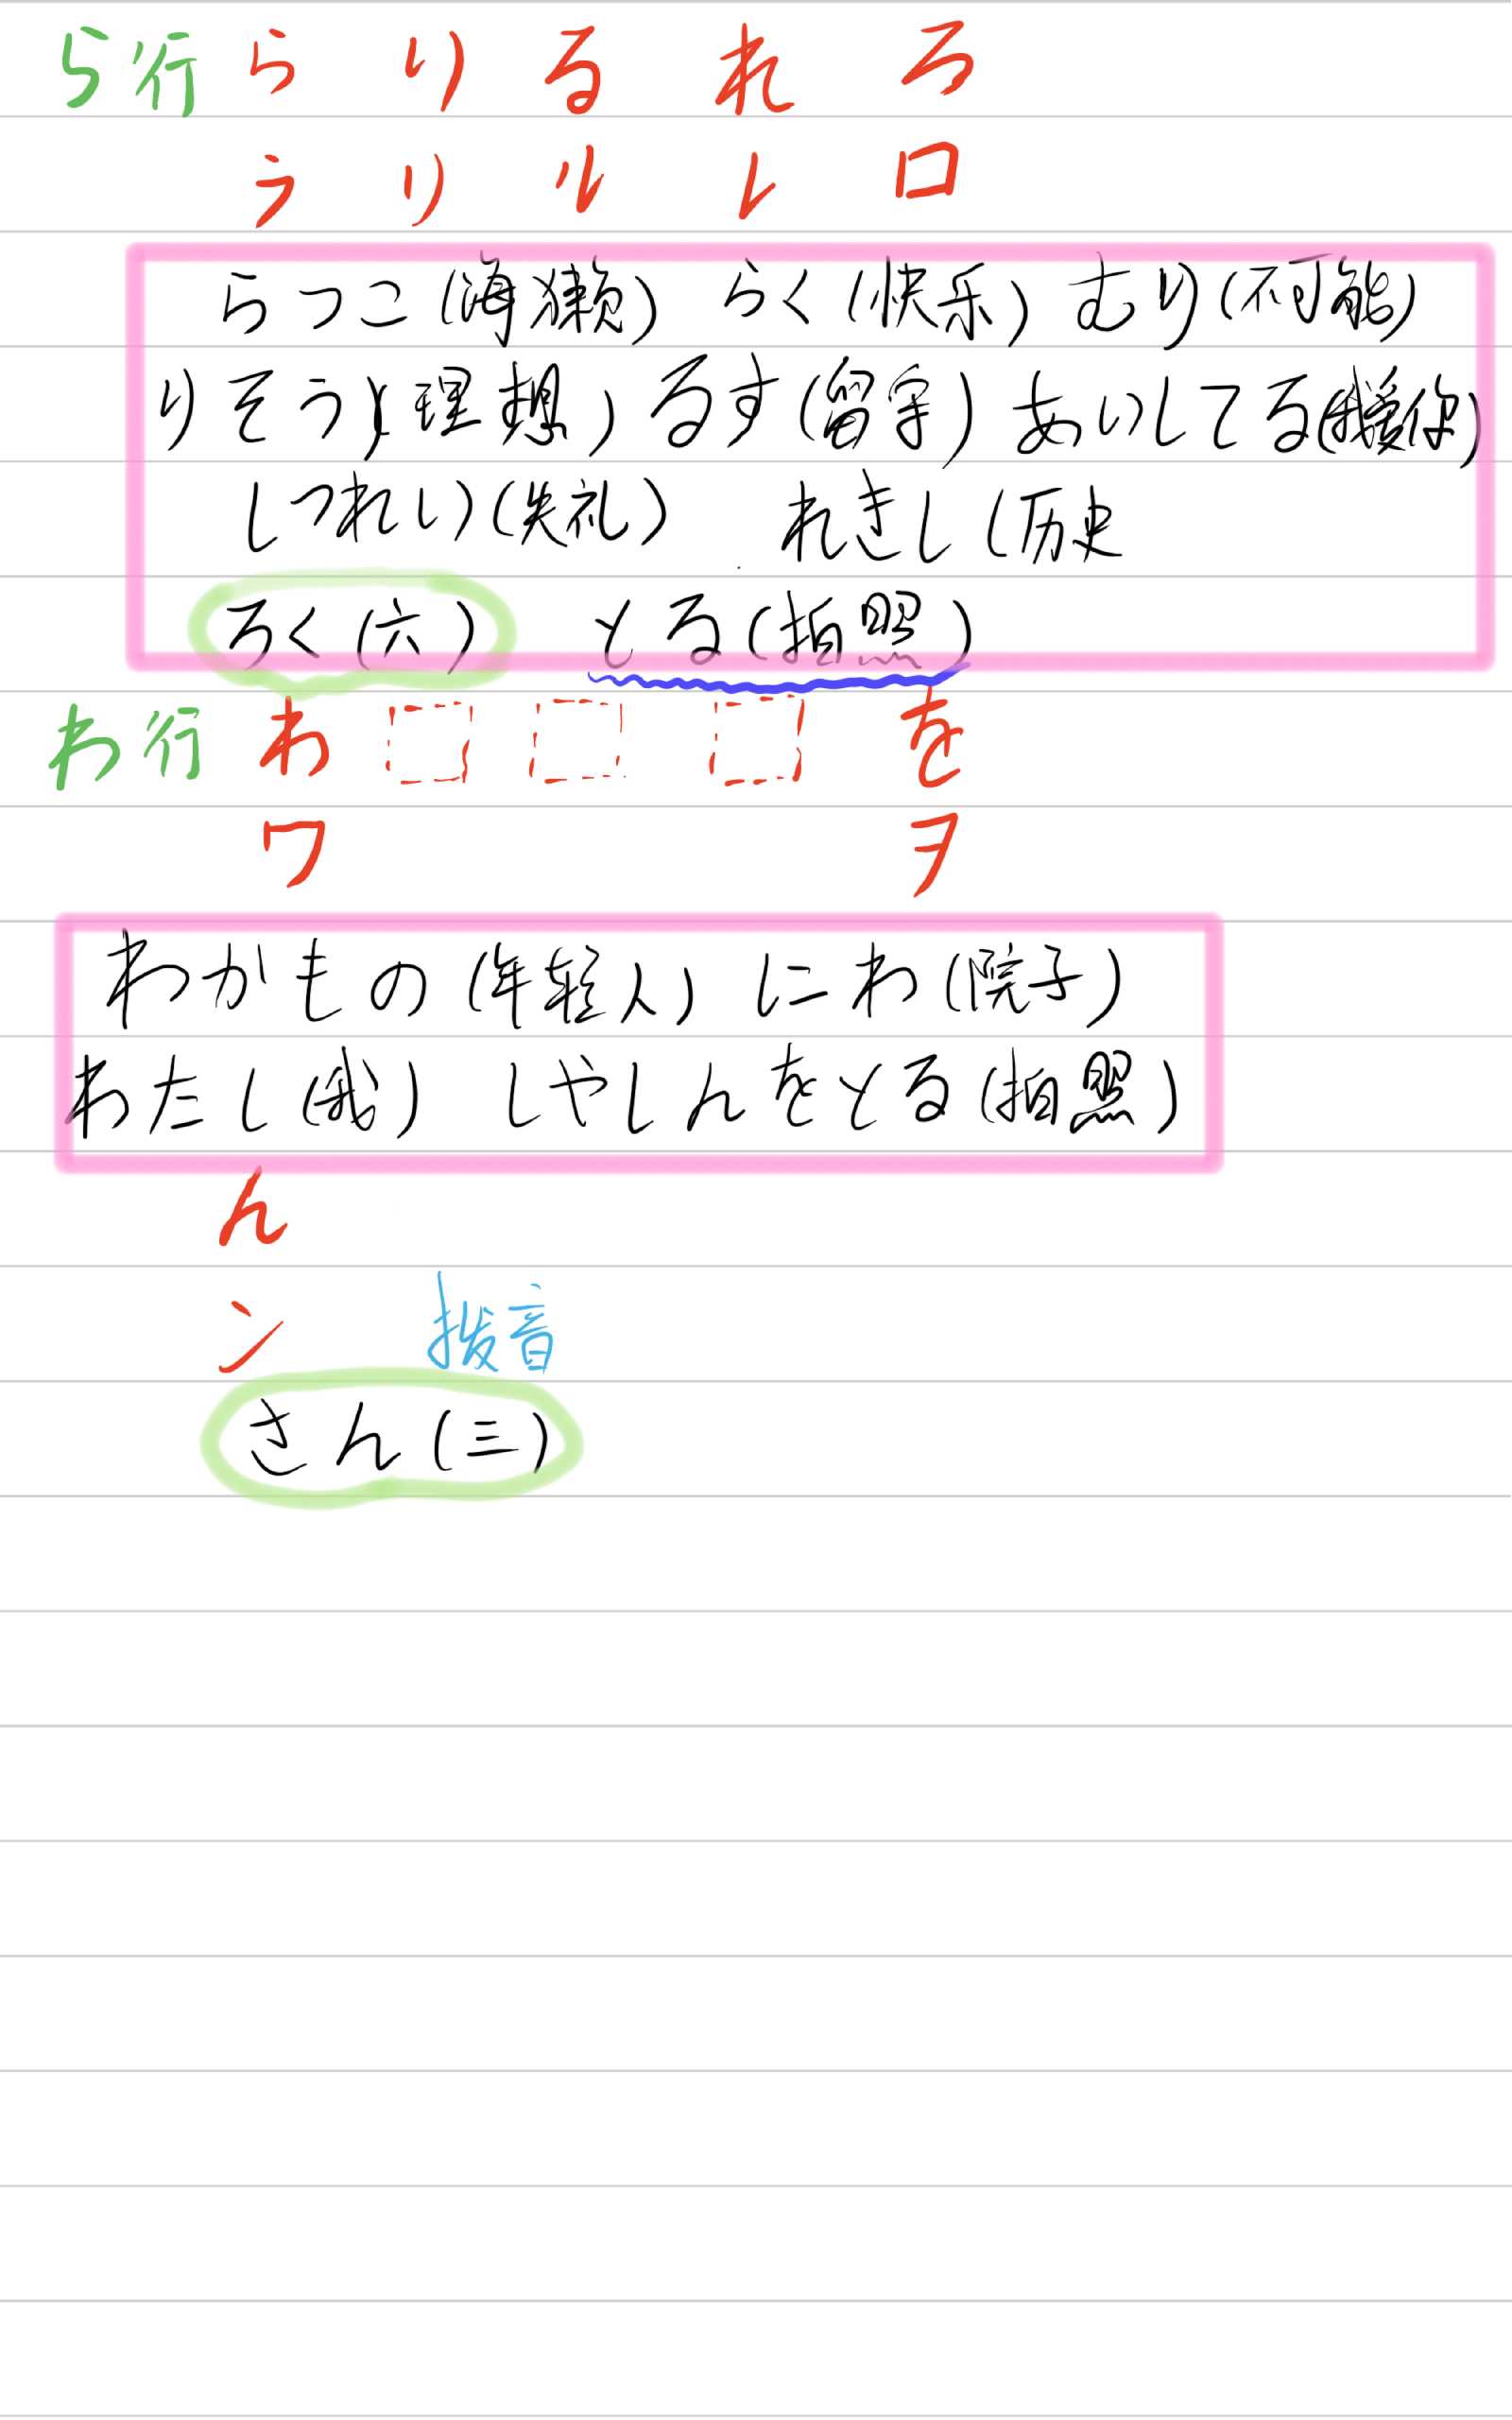 ら行 ら り る れ ろ
ラ リ ル レ ロ
らっこ(海獭) らく(快乐) むり(不可能)
りそう(理想) るす(留守) あいしてる(我爱你)
しつれい(失礼) れきし(历史
ろく(六) とる(拍照)
わ行 わ を
ワ ヲ
わかもの(年轻人) にわ(院子)
わたし(我) しゃしんをとる(拍照)
ん
ン 拨音
さん(三)